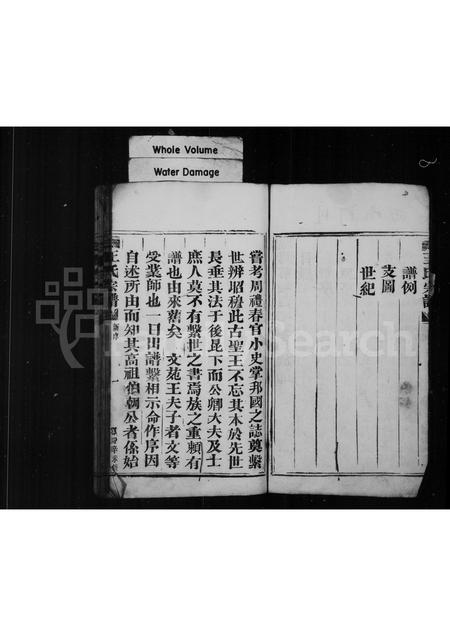 Whole Volume
Water Damage
王氏宗譜
譜例
支圖
世紀
嘗考周禮春官小史掌邦國之誌奠繫
世辨昭穆此古聖王不忘其本於先世
長垂其法于後昆下而公卿大夫及士
庶人莫不有繫世之書焉族之重賴有
譜也由來舊矣 文苑王夫子者文等
受業師也一日出譜繫相示命作序因
自述所由而知其高祖伯朝公者係始
王氏宗譜
新序
一